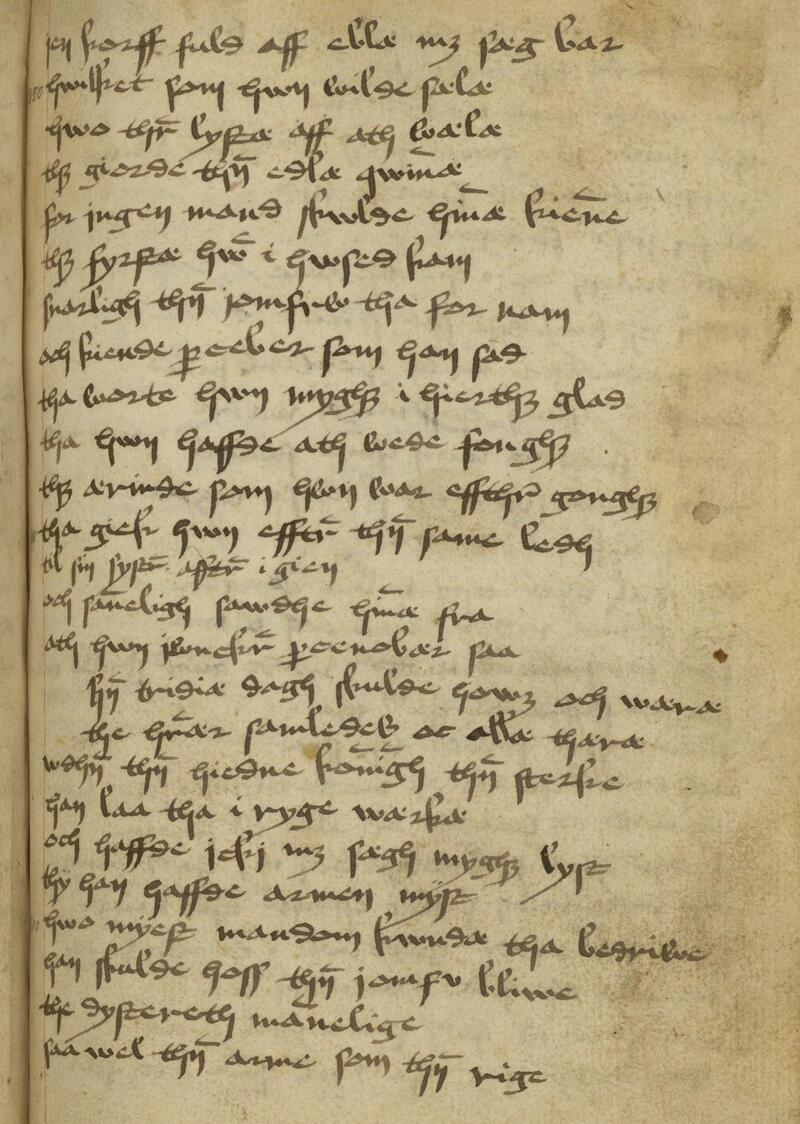 jen korff fuld aff eblæ mz sæg bar
hwilket som hwn wilde sælæ
hwo thr̄ lystæ aff ath wælæ
thz giorde thn̄ edlæ qwin̄æ
for jngen mand skwlde hin̄æ kien̄e
thz fyrstæ hwn̄ i hwsed kam
snarligh thn̄ jomfrw tha for nam
och kiende ꝑceber som han sad
tha worte hwn myghz i hierthz glad
tha hwn haffde ath wede fonghz
thz ærinde som hwn war effthr̄ gonghz
tha giek hwn efftr̄ thn̄ same ledh
til sin systr̄ afftr̄ igien
och san̄eligh sawdhe hin̄æ fra
ath hwn ꝑcenobær saa
hn̄ tridiæ dagh skulde howz och wæræ
the hr̄ær samledes oc allæ thæræ
wdhn̄ thn̄ hiedne kon̄igh thn̄ sterke
han laa tha i ryge wærkæ
och haffde jcki mz sægh myghz lyst
thy han haffde armen myst
hwo myest mandom kwndæ tha bedriwe
han skulde hoss thn̄ jomfv bliwe
the dystereth man̄elige
saa wel thn̄ arme som thn̄ rige